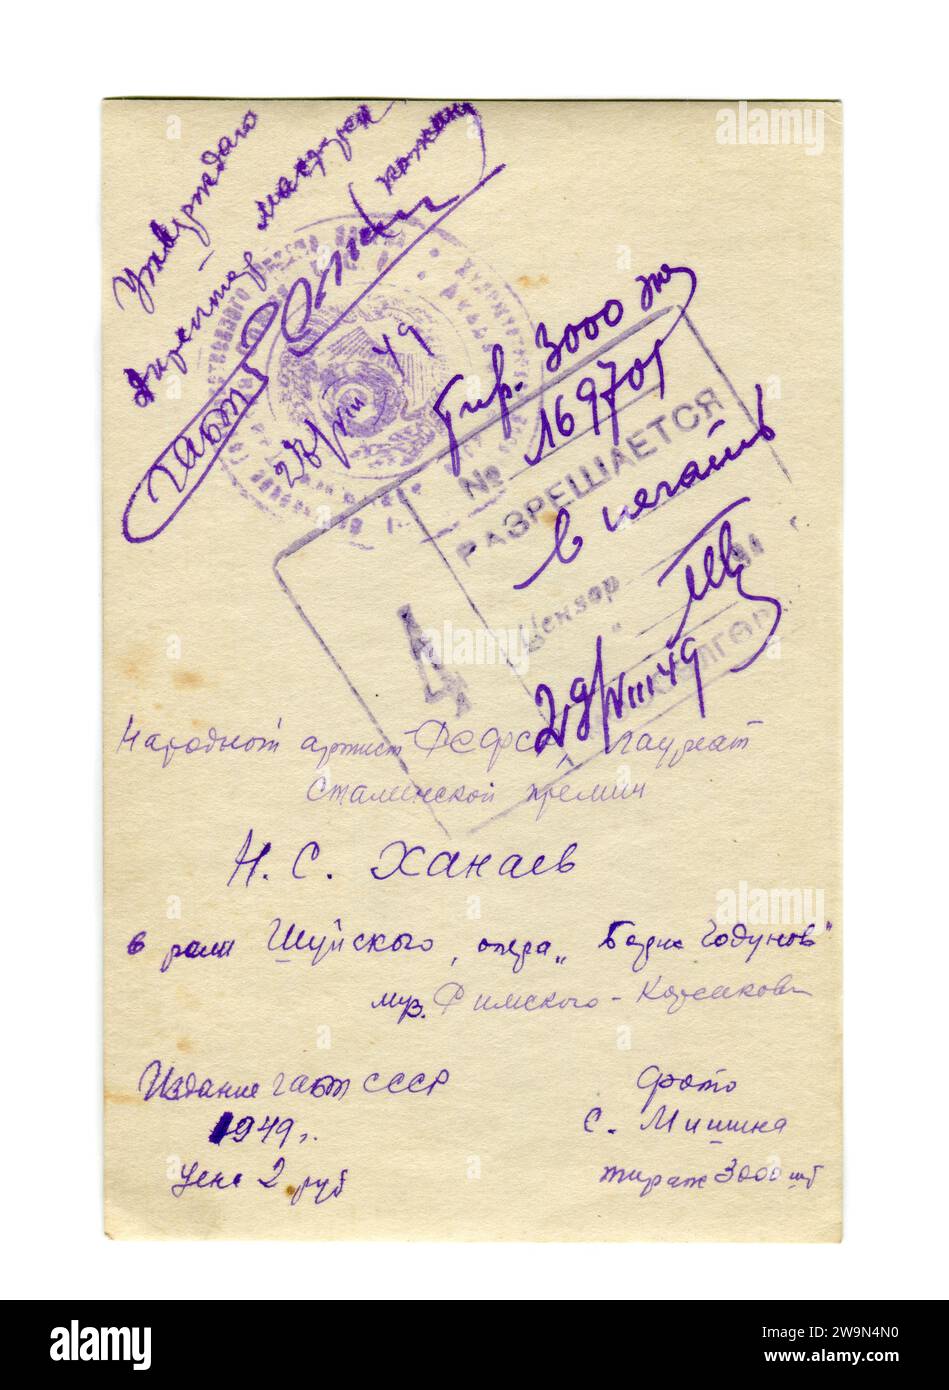 Утверждаю
Директор мастерск
ГАБТ
28/VIII 49
Тир. 3000 экз
№ 169705
РАЗРЕШАЕТСЯ
в печать
Цензор
29/VIII 49
Д
Народный артист РСФСР, лауреат
Сталинской премии
Н. С. Ханаев
в роли Шуйского, опера „Борис Годунов"
муз. Римского-Корсакова
Издание ГАБТ СССР
1949 г.
Цена 2 руб
Фото
С. Мишина
тираж 3000 шт
alamy
Image ID: 2W9N4N0
www.alamy.com